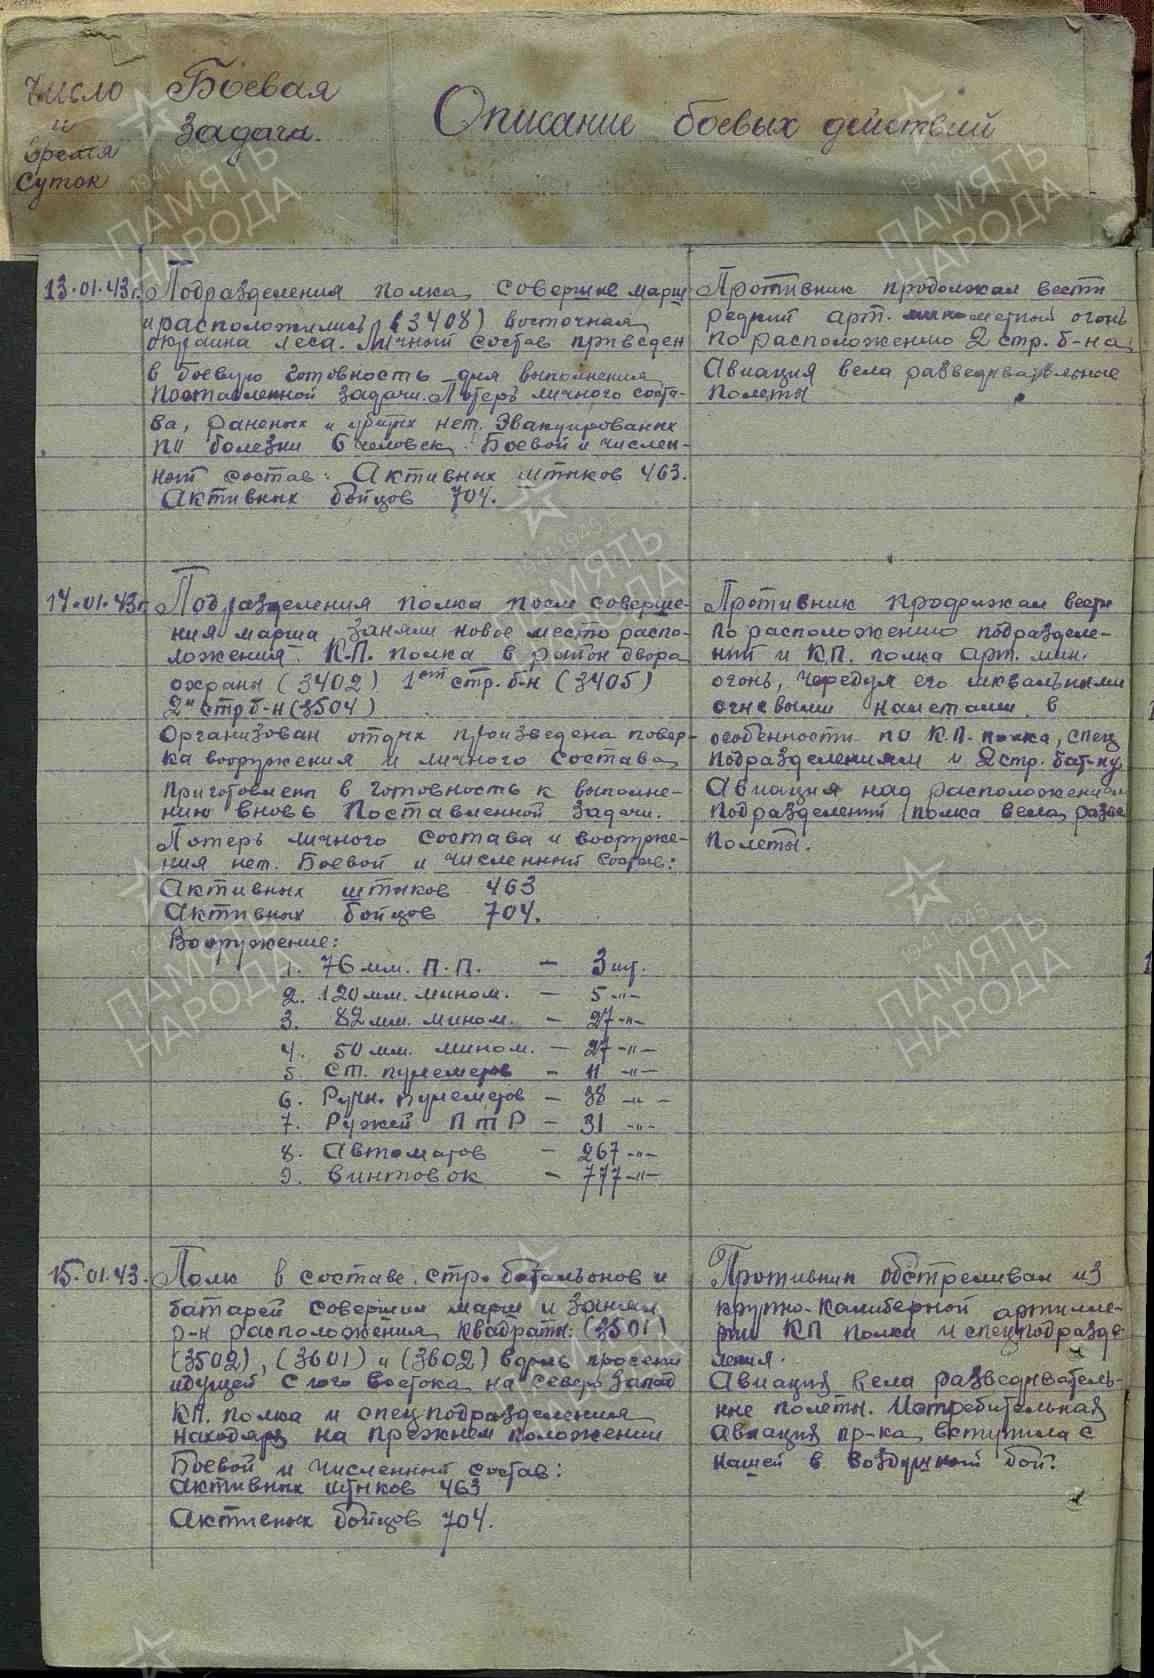 Число
и
время
суток
Боевая
задача.
Описание боевых действий
13.01.43г.
Подразделения полка, совершив марш
и расположились (3408) восточная
окраина леса. Личный состав приведен
в боевую готовность для выполнения
поставленной задачи. Потерь личного соста-
ва, раненых и убитых нет. Эвакуированных
по болезни 6 человек. Боевой и числен-
ный состав: Активных штыков 463.
Активных бойцов 704.
Противник продолжал вести
редкий арт. минометный огонь
по расположению 2 стр. б-на,
Авиация вела разведывательные
полеты
14.01.43г.
Подразделения полка после соверше-
ния марша, заняли новое место распо-
ложения. К.П. полка в район двора
охраны (3402) 1ый стр. б-н (3405)
2й стр б-н (3504)
Организован отдых произведена повер-
ка вооружения и личного состава,
приготовлен в готовность к выполне-
нию вновь поставленной задачи.
Потерь личного состава и вооруже-
ния нет. Боевой и численный состав:
Активных штыков 463
Активных бойцов 704.
Вооружение:
1. 76 мм. П.П. - 3 шт.
2. 120 мм. мином. - 5 -"-
3. 82 мм. мином. - 27 -"-
4. 50 мм. мином. - 27 -"-
5. Ст. пулеметов - 11 -"-
6. Ручн. пулеметов - 38 -"-
7. Ружей ПТР - 31 -"-
8. Автоматов - 267 -"-
9. Винтовок - 777 -"-
Противник продолжал вести
по расположению подразделе-
ний и К.П. полка арт. мин.
огонь, чередуя его шквальными
огневыми налетами, в
особенности по К.П. полка, спец
подразделениям и 2 стр. бат-ну
Авиация над расположением
подразделений полка вела развед
полеты.
15.01.43.
Полк в составе стр. батальонов и
батарей совершил марш и занял
р-н расположения квадраты: (3501)
(3502), (3601) и (3602) вдоль просеки
идущей с юго востока на северо запад
КП. полка и спец подразделения
находятся на прежнем положении
Боевой и численный состав:
Активных штыков 463
Активных бойцов 704.
Противник обстреливал из
крупно-калиберной артилле-
рии КП полка и спец подразде-
ления.
Авиация вела разведыватель-
ные полеты. Истребительная
авиация пр-ка, вступила с
нашей в воздушный бой.
1941-1945
ПАМЯТЬ
НАРОДА